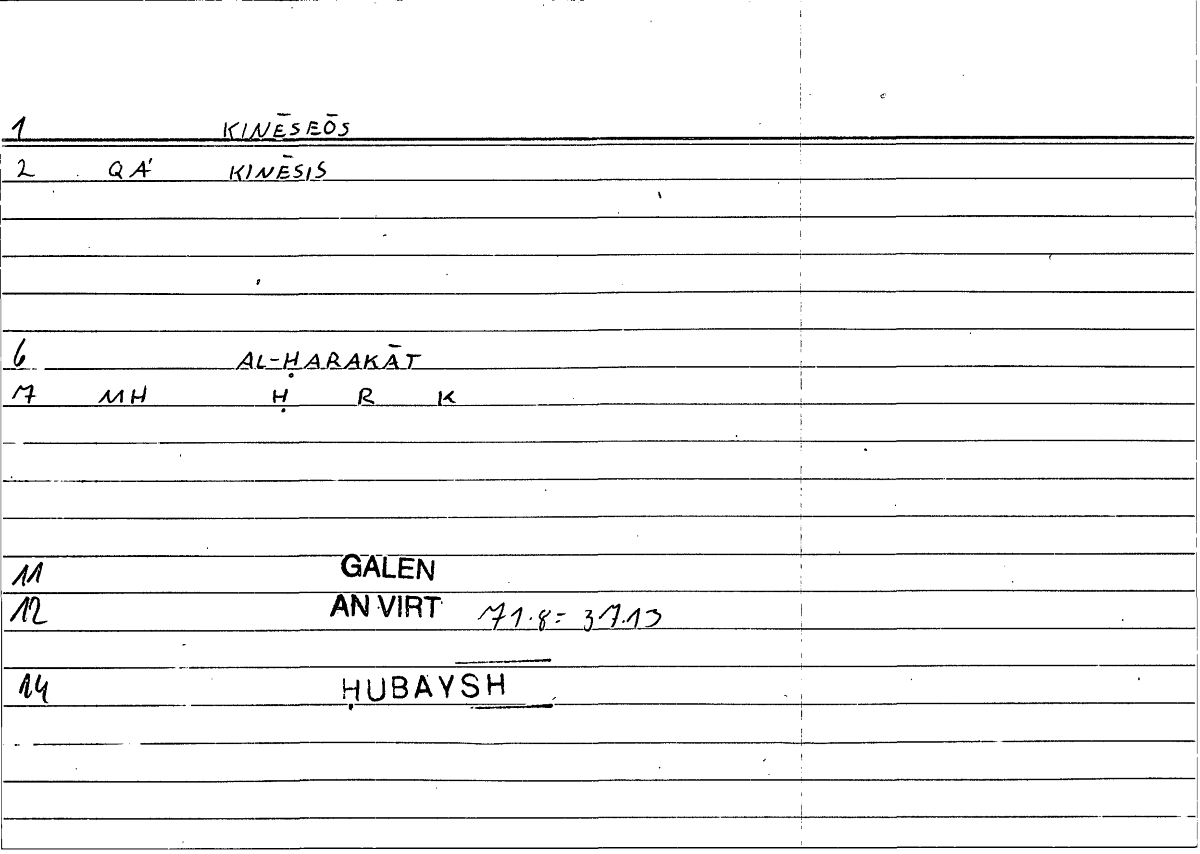 1 KINĒSEŌS
2 QA' KINĒSIS
6 AL-ḤARAKĀT
7 MH Ḥ R K
11 GALEN
12 AN VIRT 71.8= 37.13
14 ḤUBAYSH